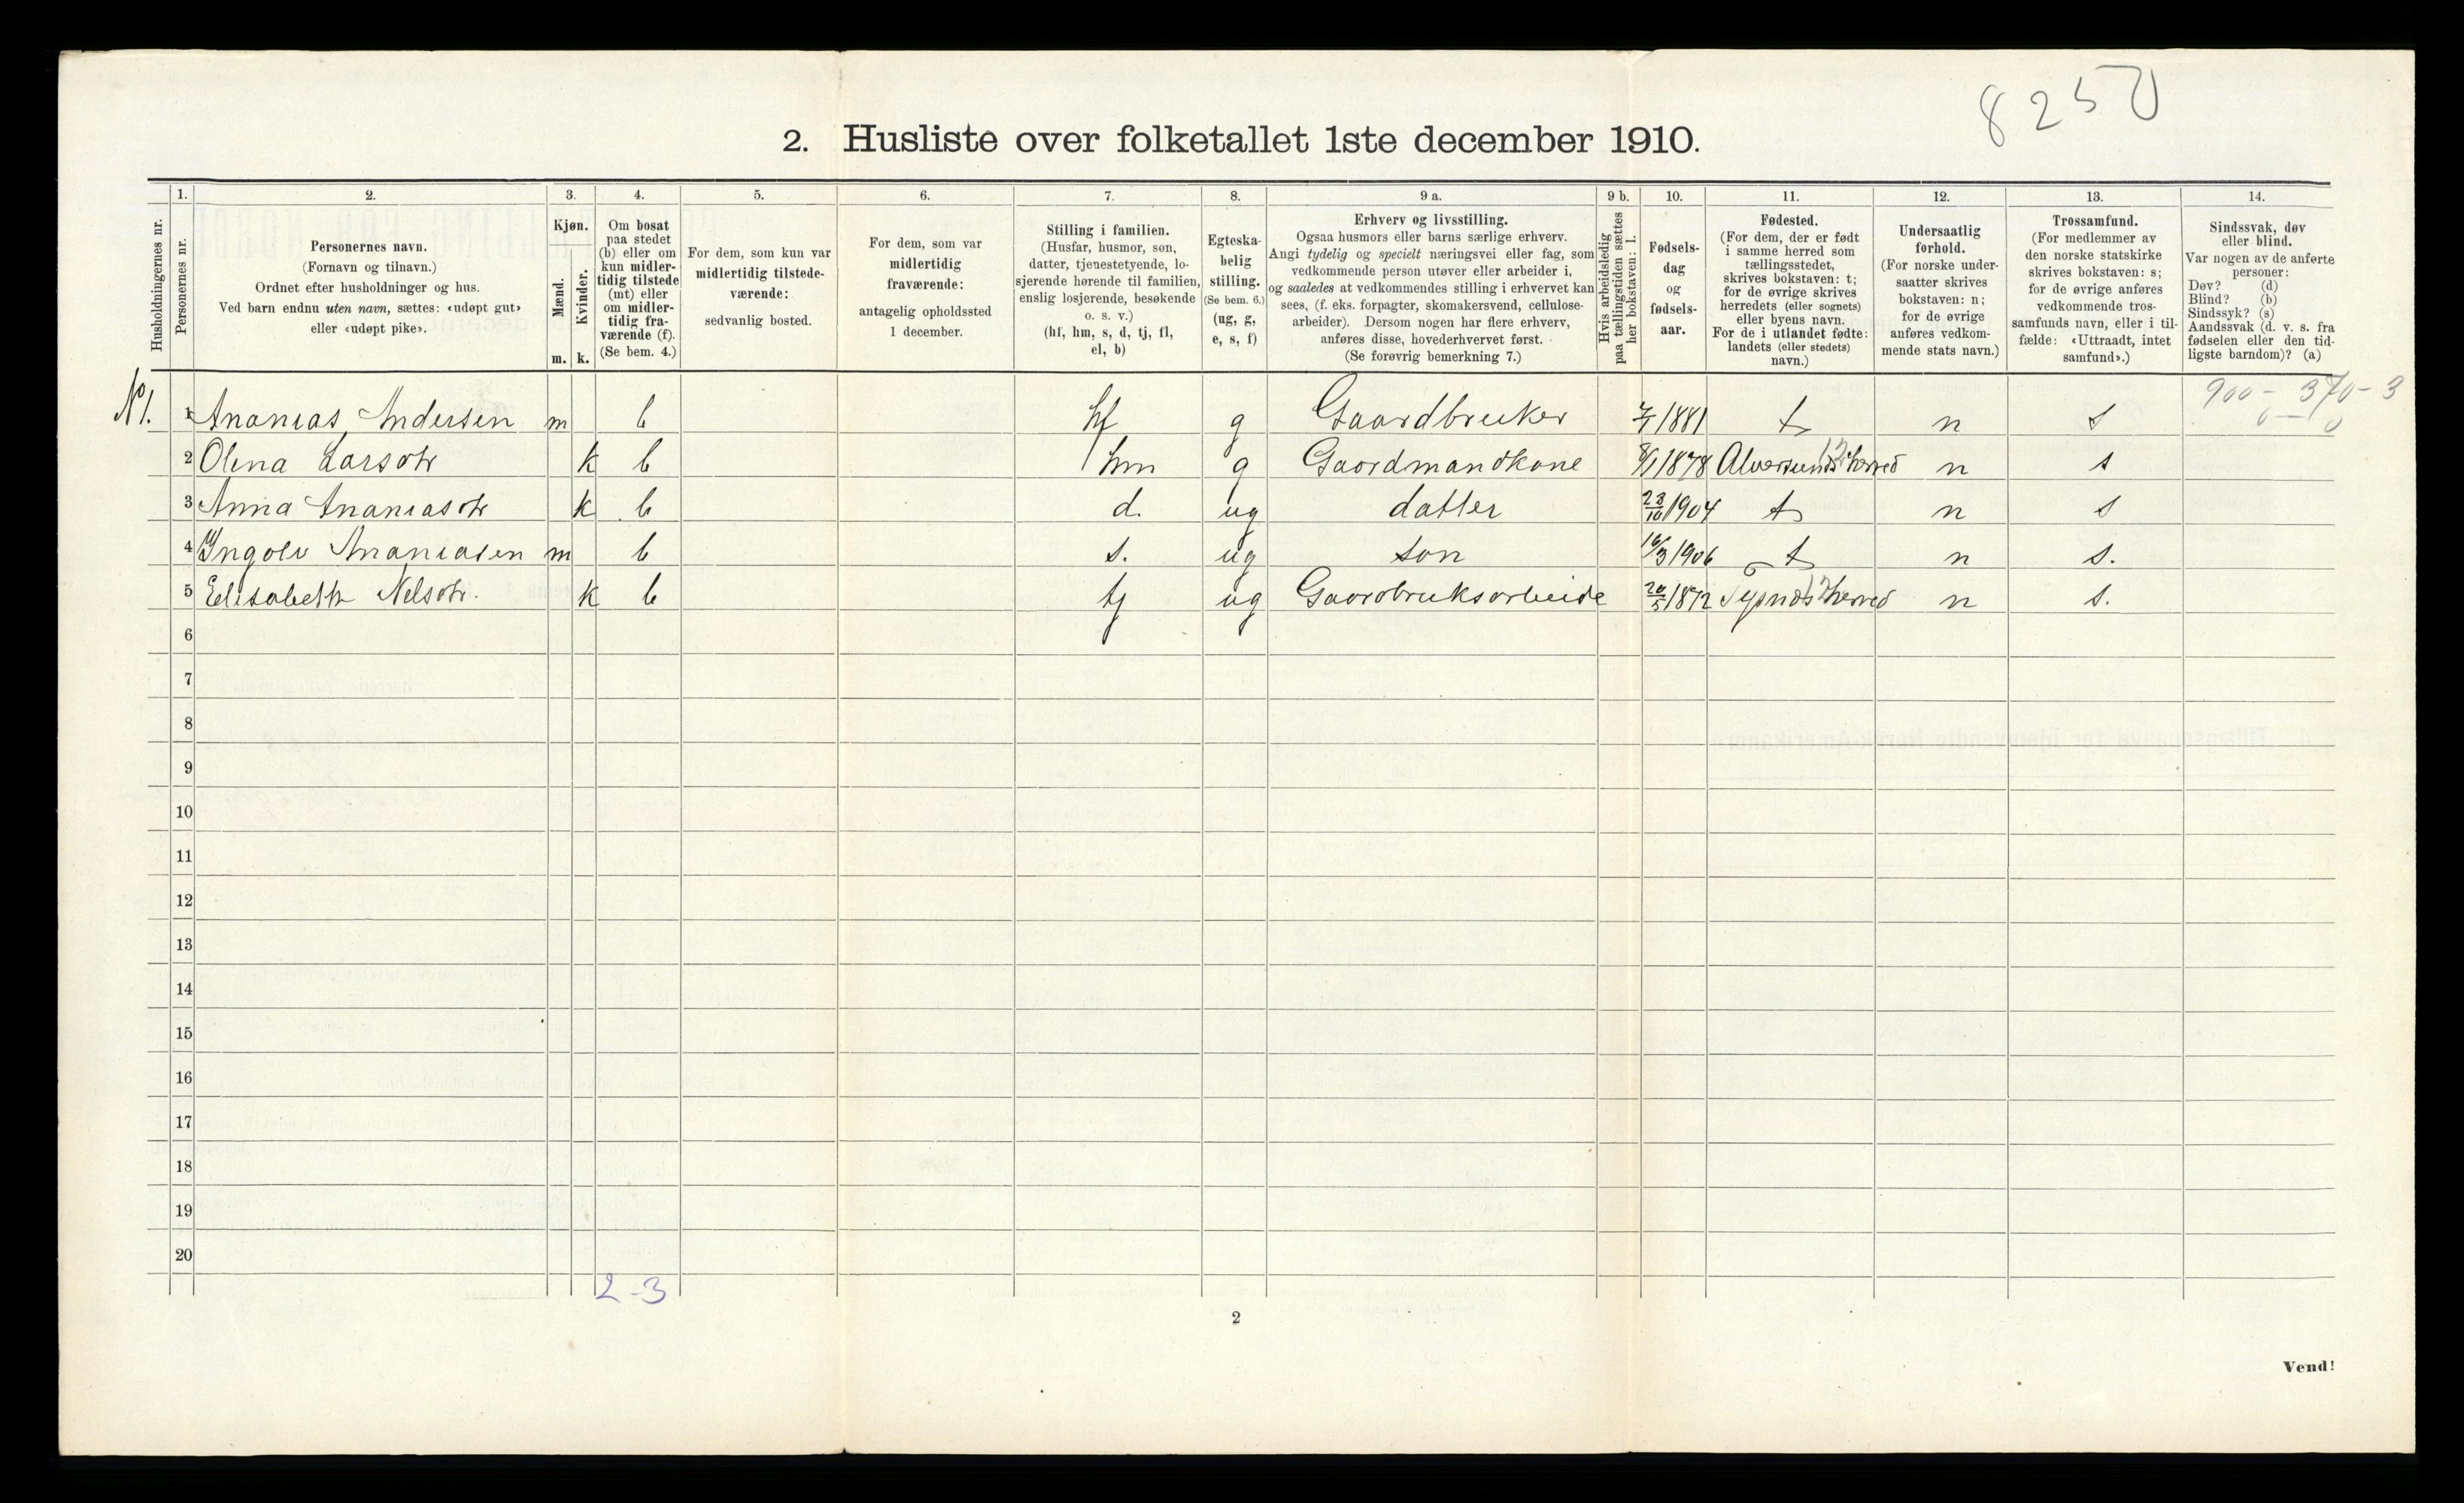 8250
2. Husliste over folketallet 1ste december 1910.
Husholdningernes nr.
1. Personernes nr.
2. Personernes navn.
(Fornavn og tilnavn.)
Ordnet efter husholdninger og hus.
Ved barn endnu uten navn, sættes: «udøpt gut»
eller «udøpt pike».
3. Kjøn.
Mænd. m.
Kvinder. k.
4. Om bosat
paa stedet
(b) eller om
kun midler-
tidig tilstede
(mt) eller
om midler-
tidig fra-
værende (f).
(Se bem. 4.)
5. For dem, som kun var
midlertidig tilstede-
værende:
sedvanlig bosted.
6. For dem, som var
midlertidig
fraværende:
antagelig opholdssted
1 december.
7. Stilling i familien.
(Husfar, husmor, søn,
datter, tjenestetyende, lo-
sjerende hørende til familien,
enslig losjerende, besøkende
o. s. v.)
(hf, hm, s, d, tj, fl,
el, b)
8. Egteska-
belig
stilling.
(Se bem. 6.)
(ug, g,
e, s, f)
9 a. Erhverv og livsstilling.
Ogsaa husmors eller barns særlige erhverv.
Angi tydelig og specielt næringsvei eller fag, som
vedkommende person utøver eller arbeider i,
og saaledes at vedkommendes stilling i erhvervet kan
sees, (f. eks. forpagter, skomakersvend, cellulose-
arbeider). Dersom nogen har flere erhverv,
anføres disse, hovederhvervet først.
(Se forøvrig bemerkning 7.)
9 b. Hvis arbeidsledig
paa tællingstiden sættes
her bokstaven: l.
10. Fødsels-
dag
og
fødsels-
aar.
11. Fødested.
(For dem, der er født
i samme herred som
tællingsstedet,
skrives bokstaven: t;
for de øvrige skrives
herredets (eller sognets)
eller byens navn.
For de i utlandet fødte:
landets (eller stedets)
navn.)
12. Undersaatlig
forhold.
(For norske under-
saatter skrives
bokstaven: n;
for de øvrige
anføres vedkom-
mende stats navn.)
13. Trossamfund.
(For medlemmer av
den norske statskirke
skrives bokstaven: s;
for de øvrige anføres
vedkommende tros-
samfunds navn, eller i til-
fælde: «Uttraadt, intet
samfund».)
14. Sindssvak, døv
eller blind.
Var nogen av de anførte
personer:
Døv? (d)
Blind? (b)
Sindssyk? (s)
Aandssvak (d. v. s. fra
fødselen eller den tid-
ligste barndom)? (a)
900 - 370 - 3
0 - 0
No 1. 1 Ananias Andersen m b hf g Gaardbruker 1881 t n s
2 Olina Larsdtr k b hm g Gaardmandkone 8/1 1878 Alversunds 12 herred n s
3 Anna Ananiasdtr k b d. ug datter 23/10 1904 t n s
4 Ingolv Ananiasen m b s. ug søn 16/3 1906 t n s.
5 Elisabeth Nelsdtr. k b tj ug Gaardbruksarbeide 20/5 1872 Tysnæs 12 herred n s.
6
7
8
9
10
11
12
13
14
15
16
17
18
19
20
2-3
2
Vend!